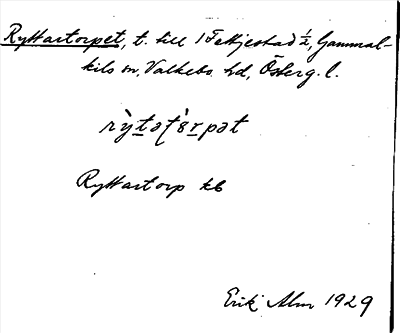 Ryttartorpet, t. till 1 Tetkjestad ½, Gammal-
kils sn, Valkebo hd, Österg. l.
rỳtət̀ɞrpət
Ryttartorp kb
Erik Alm 1929